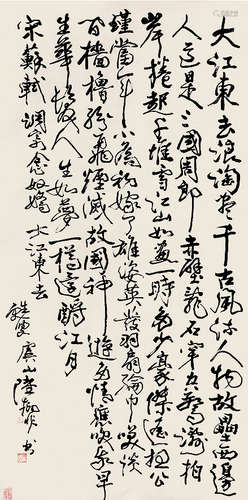 大江東去浪淘盡千古風流人物故壘西邊
人道是三國周郎赤壁亂石穿空驚濤拍
岸捲起千堆雪江山如畫一時多少豪傑遙想公
瑾當年小喬初嫁了雄姿英發羽扇綸巾笑談
間檣櫓灰飛煙滅故國神遊多情應笑我早
生華髮人生如夢一樽還酹江月
宋蘇軾調寄念奴嬌 大江東去
虞山陸 書